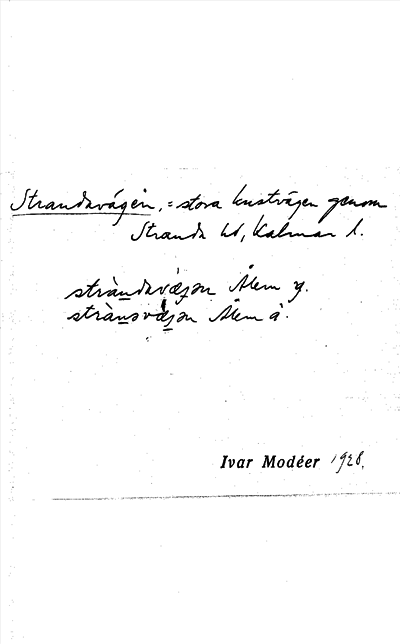 Strandavägen, = stora kustvägen genom
Stranda hd, Kalmar l.
stràndavæjən Ålem y.
strànsvæjən Ålem ä.
Ivar Modéer 1928.